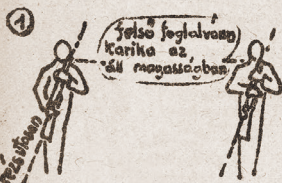 1
felső foglalványi
karika az
áll magasságban
rézsútosan